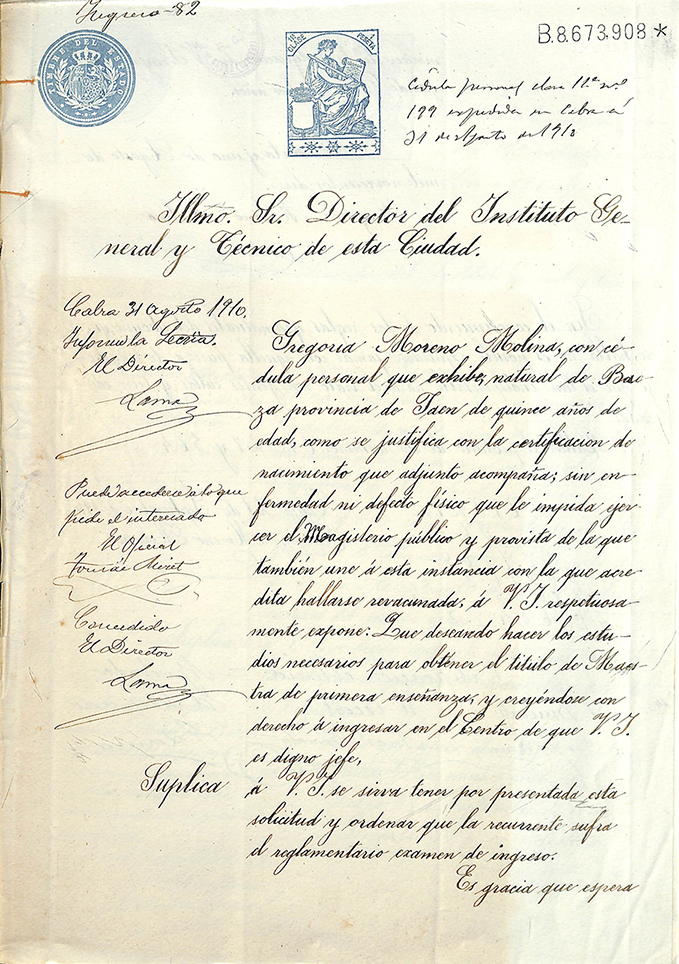 Ingreso-82
TIMBRE DEL ESTADO
18ª CLASE
1 PESETA
B.8.673.908*
Cédula personal clase 11.ª n.º
199 expedida en Cabra á
31 de Agosto de 1910
Illmo. Sr. Director del Instituto Ge-
neral y Técnico de esta Ciudad.
Cabra 31 agosto 1910.
Informe la Secría.
El Director
Lama
Puede accederse á lo que
pide el interesado
El Oficial
Concedido
El Director
Lama
Gregoria Moreno Molina, con cé-
dula personal que exhibe, natural de Bae-
za provincia de Jaen de quince años de
edad, como se justifica con la certificacion de
nacimiento que adjunto acompaña; sin en-
fermedad ni defecto físico que le impida ejer-
cer el Magisterio público y provista de la que
también une á esta instancia con la que acre-
dita hallarse revacunada, á V. I. respetuosa-
mente expone: Que deseando hacer los estu-
dios necesarios para obtener el titulo de Maes-
tra de primera enseñanza, y creyéndose con
derecho á ingresar en el Centro de que V. I.
es digno jefe,
Suplica á V. I. se sirva tener por presentada esta
solicitud y ordenar que la recurrente sufra
el reglamentario examen de ingreso.
Es gracia que espera